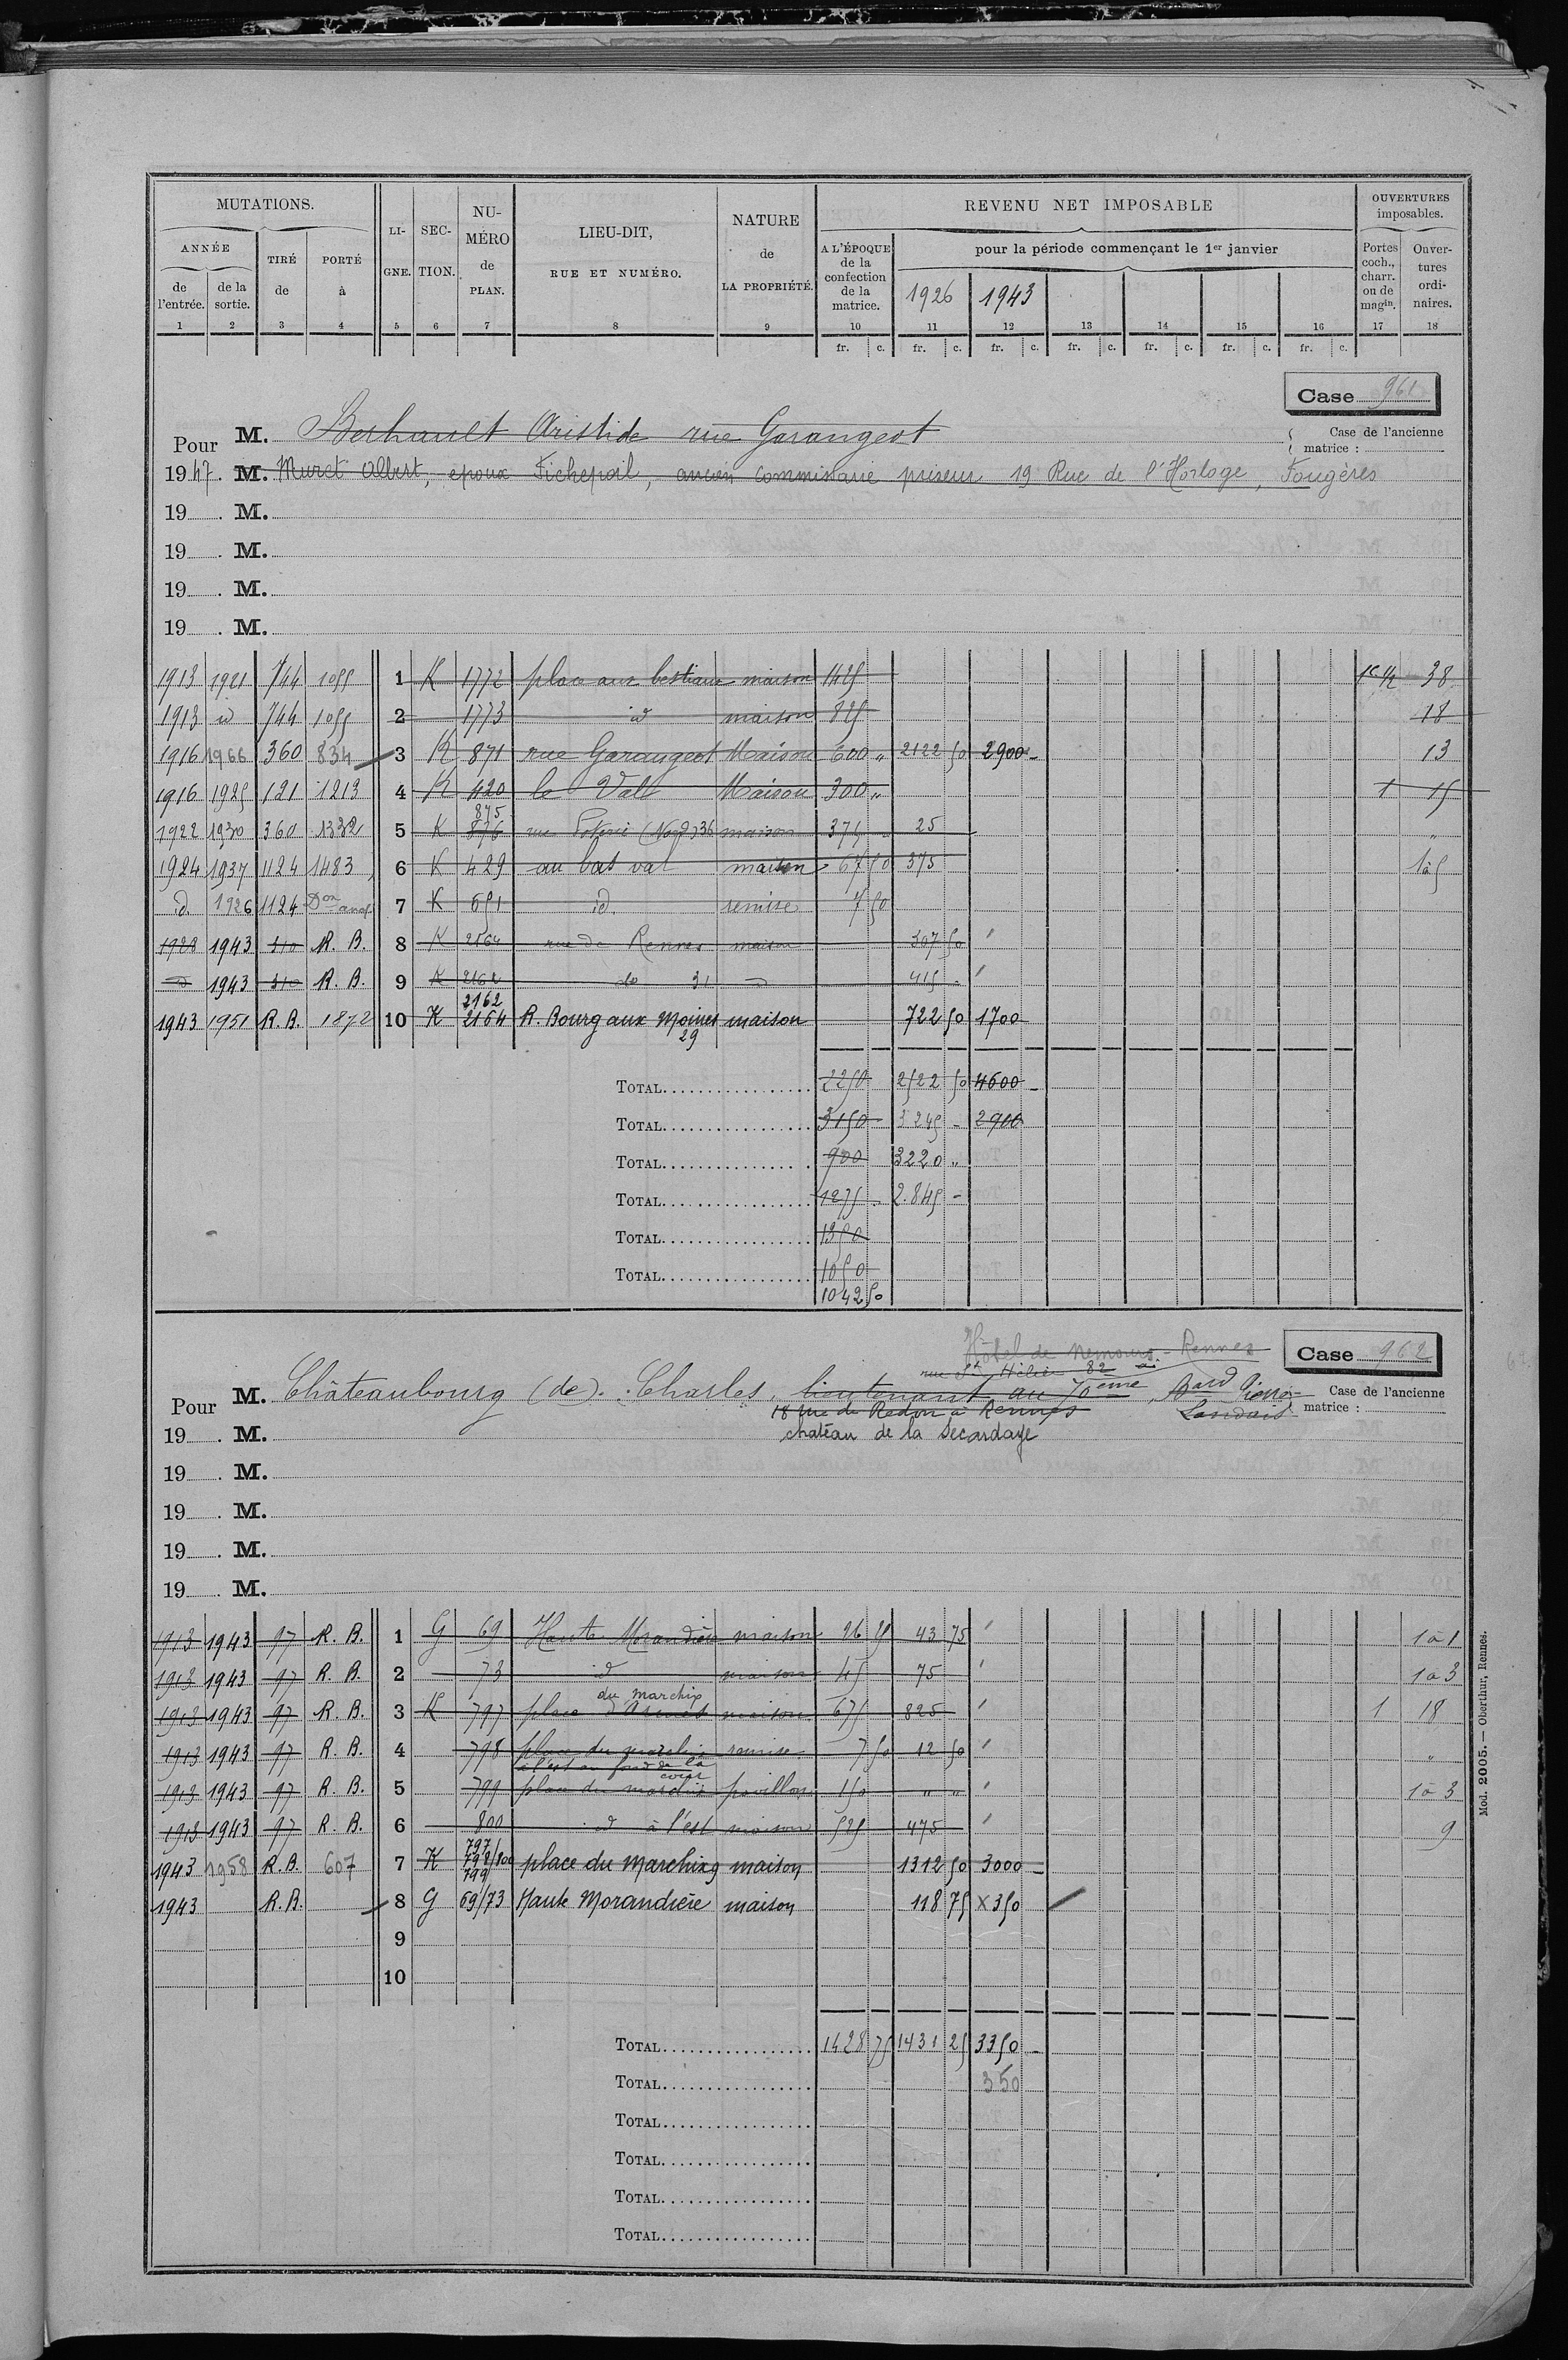 MUTATIONS.
ANNÉE
de l'entrée.
de la sortie.
TIRÉ de
PORTÉ à
LI-GNE.
SEC-TION.
NU-MÉRO de PLAN.
LIEU-DIT, RUE ET NUMÉRO.
NATURE de LA PROPRIÉTÉ.
REVENU NET IMPOSABLE
A L'ÉPOQUE de la confection de la matrice.
pour la période commençant le 1er janvier
1926 1943
OUVERTURES imposables.
Portes coch., charr. ou de magin.
Ouver-tures ordi-naires.
1 2 3 4 5 6 7 8 9 10 11 12 13 14 15 16 17 18
fr. c. fr. c. fr. c. fr. c. fr. c. fr. c. fr. c.
Case 961
Pour M. Berhault Aristide rue Garangeot
Case de l'ancienne matrice :
1947. M. Muret Albert, epoux Fichepoil, ancien commissaire priseur 19 Rue de l'Horloge, Fougères
19 . M.
19 . M.
19 . M.
19 . M.
1913 1921 744 1055 1 K 1772 place aux bestiaux maison 1425 1c.½ 38
1913 id 744 1055 2 1773 id maison 825 18
1916 1966 360 834 3 K 871 rue Garangeot Maison 600 " 2122 50 2900 - 13
1916 1925 121 1213 4 K 420 le Val Maison 300 " 1 15
875
1922 1930 360 1332 5 K 876 rue Poterie (Nord) 36 maison 375 25 "
1924 1937 1124 1483 6 K 429 au bas val maison 67 50 375 1à5
d. 1926 1124 Don anct 7 K 651 id. remise 7 50
1928 1943 510 R. B. 8 K 2164 rue de Rennes maison 307 50 '
d 1943 510 R. B. 9 K 2162 do 31 d 415 - '
2162
1943 1951 R. B. 1872 10 K 2164 R. Bourg aux Moines maison 722 50 1700
29
TOTAL 2250 2522 50 4600 -
TOTAL 3150 3245 - 2900
TOTAL 900 3220 "
TOTAL 1275 - 2.845 -
TOTAL 1350
TOTAL 1050
1042 50
Hôtel de Nemours - Rennes
Case 962
rue St Hélier 82
Pour M. Châteaubourg (de) Charles, lieutenant au 70eme, Bard Pierre Landais
Case de l'ancienne matrice :
18 rue de Redon à Rennes
19 . M. chatêau de la Secardaye
19 . M.
19 . M.
19 . M.
19 . M.
1913 1943 97 R. B. 1 G 69 Haute Morandière maison 26 25 43 75 ' 1à1
1913 1943 97 R. B. 2 73 id maison 45 75 ' 1à3
du marchix
1913 1943 97 R. B. 3 K 797 place d'Armes maison 675 825 ' 1 18
1913 1943 97 R. B. 4 798 place du marchix remise 7 50 12 50 ' "
à l'est au fond de la cour
1913 1943 97 R. B. 5 799 place du marchix pavillon 150 " " ' 1à3
1913 1943 97 R. B. 6 800 id à l'est maison 525 475 ' 9
797
1943 1958 R. B. 607 7 K 798/800 place du Marchix 9 maison 1312 50 3000 -
799
1943 R. B. 8 G 69/73 Haute Morandière maison 118 75 X 350
9
10
TOTAL 1428 75 1431 25 3350 -
TOTAL 350
TOTAL
TOTAL
TOTAL
TOTAL
Mod. 2005. — Oberthur, Rennes.